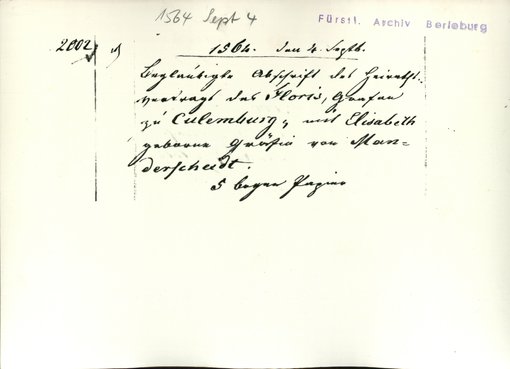 1564 Sept 4
Fürstl. Archiv Berleburg
2002
1564. den 4. Septb.
Beglaubigte Abschrift des Heiraths-
vertrags des Floris, Grafen
zu Culemburg, mit Elisabeth
geborne Gräfin von Man-
derscheidt.
5 bogen Papier